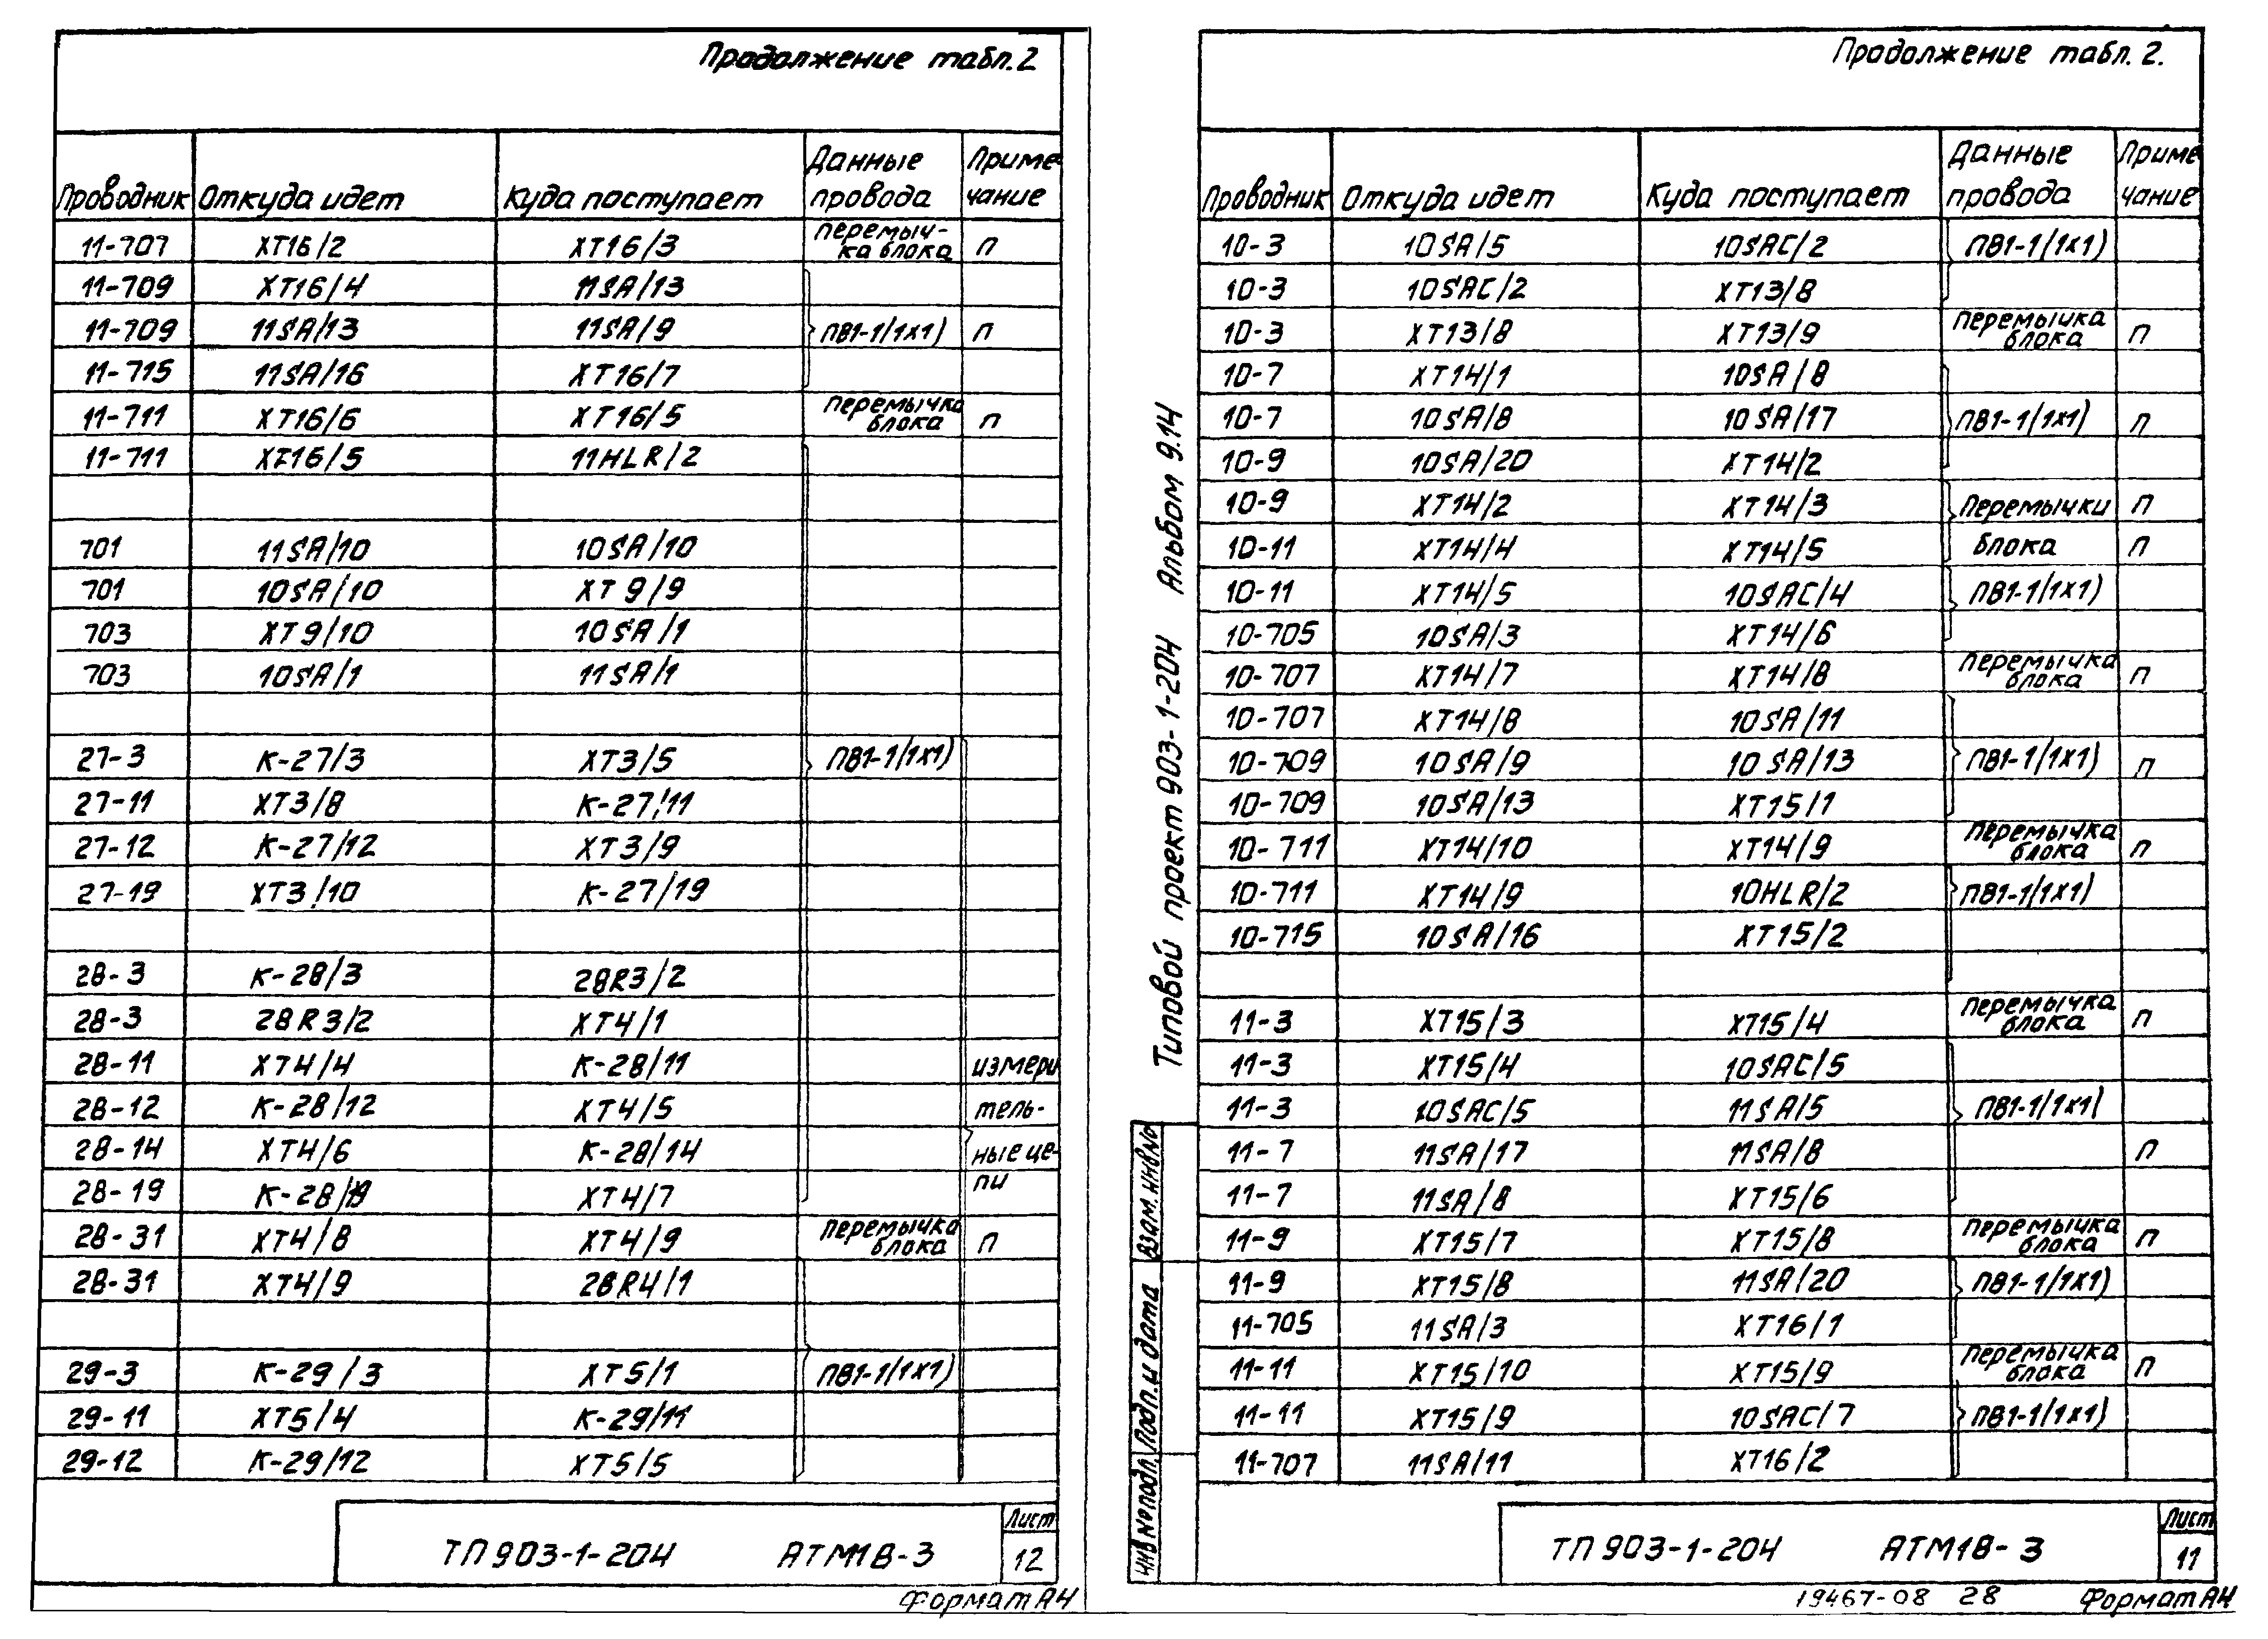 Продолжение табл.2
Проводник Откуда идет Куда поступает Данные провода Примечание
11-707 XT16/2 XT16/3 перемыч-ка блока п
11-709 XT16/4 11SA/13
11-709 11SA/13 11SA/9 ПВ1-1/1x1) п
11-715 11SA/16 XT16/7
11-711 XT16/6 XT16/5 перемычка блока п
11-711 XT16/5 11HLR/2
701 11SA/10 10SA/10
701 10SA/10 XT9/9
703 XT9/10 10SA/1
703 10SA/1 11SA/1
27-3 К-27/3 XT3/5 ПВ1-1/1x1)
27-11 XT3/8 К-27/11
27-12 К-27/12 XT3/9
27-19 XT3/10 К-27/19
28-3 К-28/3 28R3/2
28-3 28R3/2 XT4/1
28-11 XT4/4 К-28/11 измери
28-12 К-28/12 XT4/5 тель-
28-14 XT4/6 К-28/14 ные це-
28-19 К-28/19 XT4/7 пи
28-31 XT4/8 XT4/9 перемычка блока п
28-31 XT4/9 28R4/1
29-3 К-29/3 XT5/1 ПВ1-1/1x1)
29-11 XT5/4 К-29/11
29-12 К-29/12 XT5/5
ТП 903-1-204 АТМ18-3 Лист 12
Формат А4
Продолжение табл. 2.
Проводник Откуда идет Куда поступает Данные провода Примечание
10-3 10SA/5 10SAC/2 ПВ1-1/1x1)
10-3 10SAC/2 XT13/8
10-3 XT13/8 XT13/9 перемычка блока п
10-7 XT14/1 10SA/8
10-7 10SA/8 10SA/17 ПВ1-1/1x1) п
10-9 10SA/20 XT14/2
10-9 XT14/2 XT14/3 Перемычки п
10-11 XT14/4 XT14/5 блока п
10-11 XT14/5 10SAC/4 ПВ1-1/1x1)
10-705 10SA/3 XT14/6
10-707 XT14/7 XT14/8 перемычка блока п
10-707 XT14/8 10SA/11
10-709 10SA/9 10SA/13 ПВ1-1/1x1) п
10-709 10SA/13 XT15/1
10-711 XT14/10 XT14/9 перемычка блока п
10-711 XT14/9 10HLR/2 ПВ1-1/1x1)
10-715 10SA/16 XT15/2
11-3 XT15/3 XT15/4 перемычка блока п
11-3 XT15/4 10SAC/5
11-3 10SAC/5 11SA/5 ПВ1-1/1x1)
11-7 11SA/17 11SA/8 п
11-7 11SA/8 XT15/6
11-9 XT15/7 XT15/8 перемычка блока п
11-9 XT15/8 11SA/20 ПВ1-1/1x1)
11-705 11SA/3 XT16/1
11-11 XT15/10 XT15/9 перемычка блока п
11-11 XT15/9 10SAC/7 ПВ1-1/1x1)
11-707 11SA/11 XT16/2
Типовой проект 903-1-204 Альбом 9.14
Инв № подл. Подп. и дата Взам. инв №
ТП 903-1-204 АТМ18-3 Лист 11
19467-08 28 Формат А4